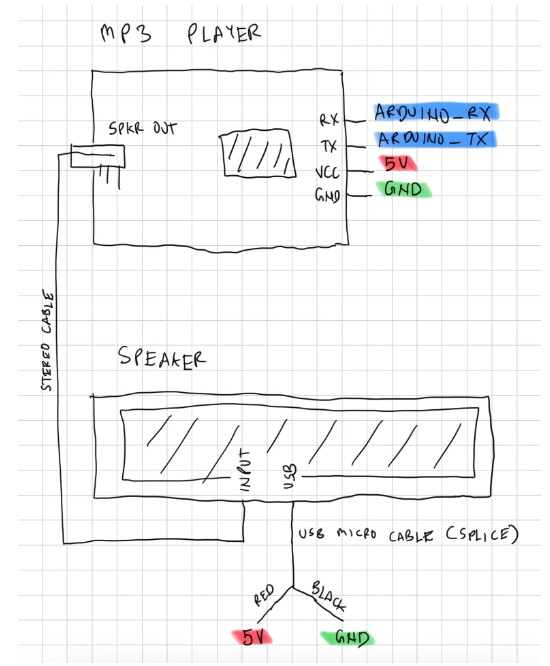 MP3 PLAYER
SPKR OUT
RX
ARDUINO_RX
TX
ARDUINO_TX
VCC
5V
GND
GND
STEREO CABLE
SPEAKER
INPUT
USB
USB MICRO CABLE (SPLICE)
RED
BLACK
5V
GND